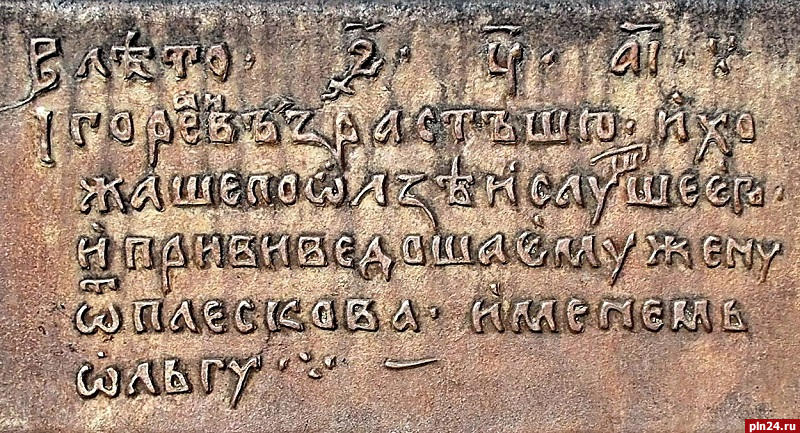 В лѣто · ҂ѕ҃ · у҃ · а҃і ·
Ігореви възрастъшю · и҆ хо
жаше по ѡлзѣ и҆ слушг҄ше єгѡ ·
и҆ прививедоша є҆му жену
ѿ плескова · и҆менемь
ѡльгу
pln24.ru